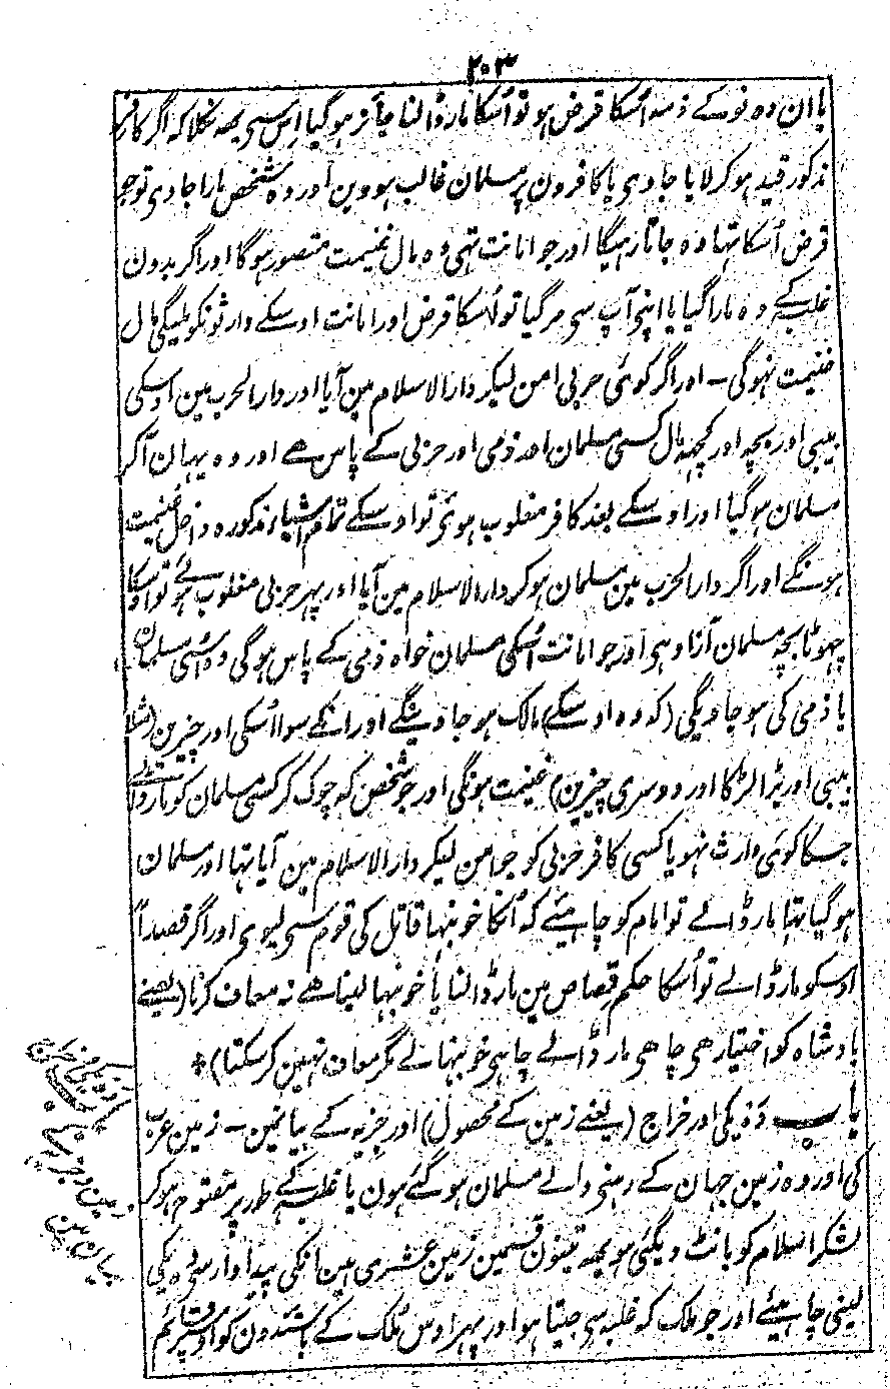 ۲۰۳
یا ان دونو کے ذمہ اُسکا قرض ہو تو اُسکا مار ڈالنا جائز ہو گیا اِس سی یہہ نکلا کہ اگر کافر
مذکور قید ہو کر لایا جاوی یا کافرون پر مسلمان غالب ہووین اور وہ شخص مارا جاوی تو جو
قرض اُسکا تہا وہ جاتا رہیگا اور جو امانت تہی وہ مال غنیمت متصور ہوگا اور اگر بدون
غلبہ کے وہ مارا گیا یا اپنی آپ سی مر گیا تو اُسکا قرض اور امانت اوسکے وارثونکو ملیگی مال
غنیمت نہوگی - اور اگر کوئی حربی امن لیکر دار الاسلام مین آیا اور دار الحرب مین اوسکی
بیبی اور بچہ اور کچہہ مال کسی مسلمان اور ذمی اور حربی کے پاس ہے اور وہ یہان آکر
مسلمان ہو گیا اور اوسکے بعد کافر مغلوب ہوئی تو اوسکے تمام اشیاء مذکورہ داخل غنیمت
ہونگے اور اگر دار الحرب مین مسلمان ہو کر دار الاسلام مین آیا اور پہر حربی مغلوب ہوئے تو اوسکا
چہوٹا بچہ مسلمان آزاد ہی اور جو امانت اُسکی مسلمان خواہ ذمی کے پاس ہوگی وہ اسی مسلمان
یا ذمی کی ہو جاویگی (کہ وہ اوسکے) مالک ہو جاوینگے اور انکے سوا اُسکی اور چیزین (مثلا
بیبی اور بڑا لڑکا اور دوسری چیزین) غنیمت ہونگی اور جو شخص کہ چوک کر کسی مسلمان کو مار ڈالے
جسکا کوئی وارث نہو یا کسی کافر حربی کو جو امن لیکر دار الاسلام مین آیا تہا اور مسلمان
ہو گیا تہا مار ڈالے تو امام کو چاہیئے کہ اُنکا خونبہا قاتل کی قوم سی لیوی اور اگر قصداً
اوسکو مار ڈالے تو اُسکا حکم قصاص مین مار ڈالنا یا خونبہا لینا ہے نہ معاف کرنا (یعنے
بادشاہ کو اختیار ہی چاہی مار ڈالے چاہی خونبہا لے مگر معاف نہین کر سکتا) *
باب دَہ یکی اور خراج (یعنے زمین کے محصول) اور جزیہ کے بیانمین - زمین عرب
کی اور وہ زمین جہان کے رہنی والے مسلمان ہو گئے ہون یا غلبہ کے طور پر مفتوح ہو کر
لشکر اسلام کو بانٹ دیگئی ہو یہہ تینون قسمین زمین عشری ہین انکی پیداوار سی دہ یکی
لینی چاہیئے اور جو ملک کہ غلبہ سی جیتا ہو اور پہر اوس ملک کے باشندون کو اوسپر قائم
زمین و جزیہ کے
بیان مین